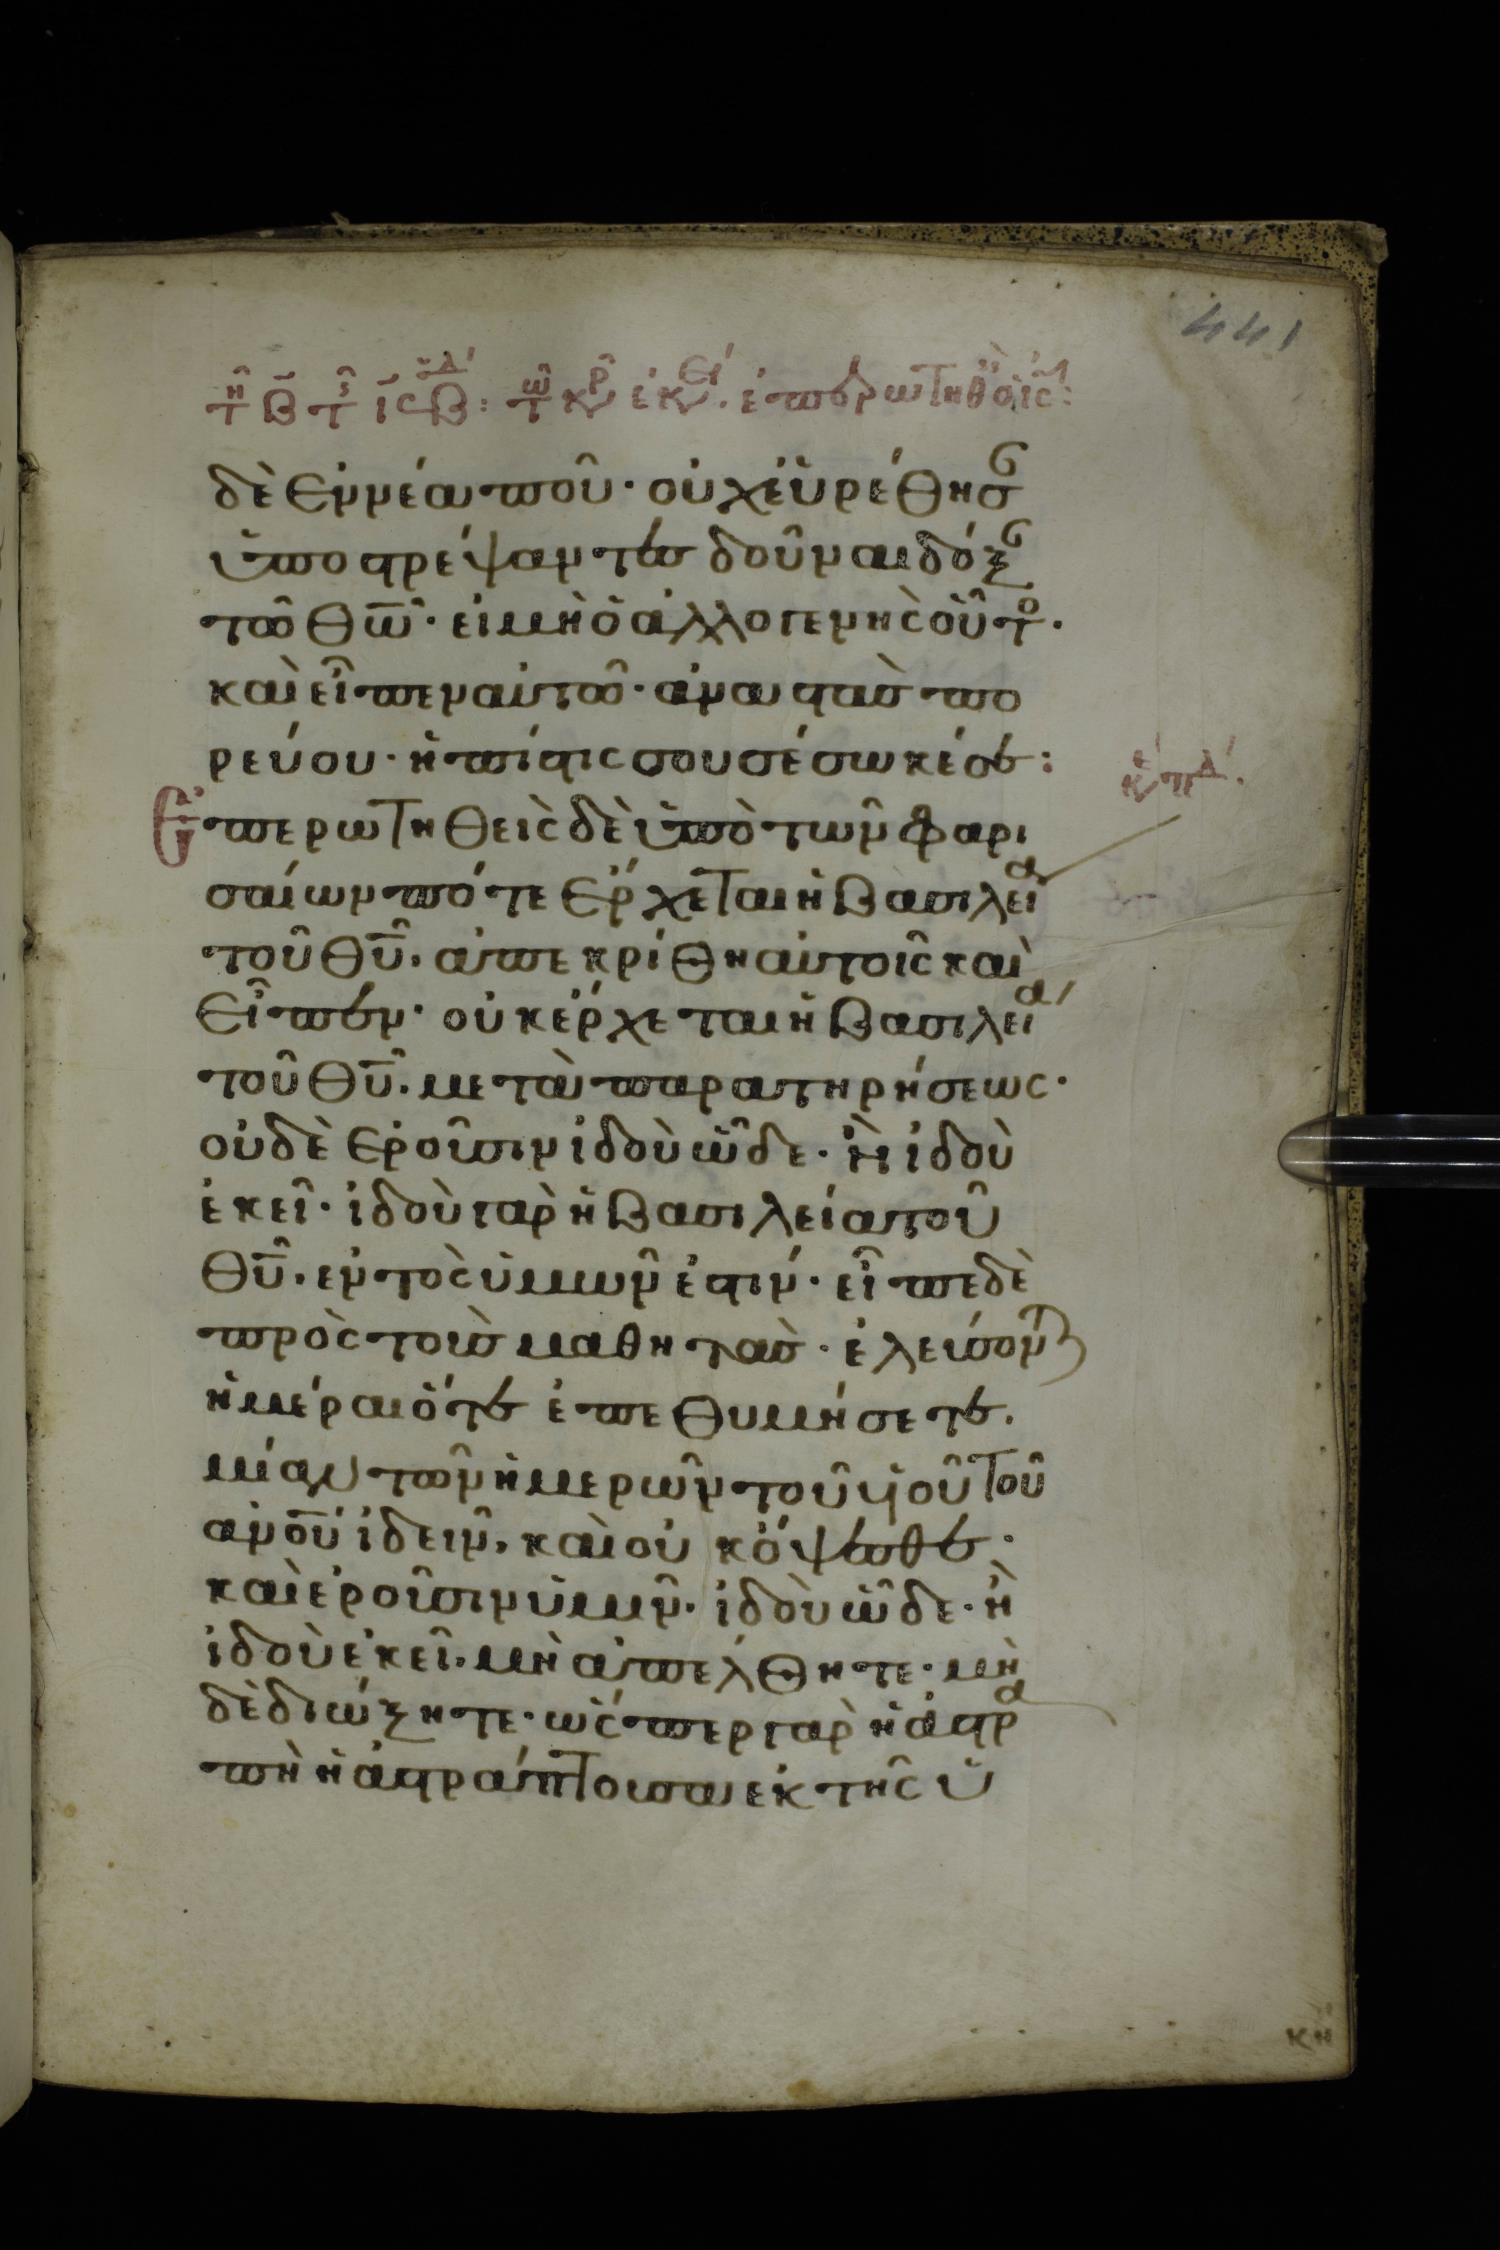 441
δὲ ἐννέα ποῦ· οὐχ εὑρέθησ
ὑποστρέψαντες δοῦναι δόξ
τῶ θω̅· εἰ μὴ ὁ ἀλλογενὴς οὗτο.
καὶ εἶπεν αὐτῶ· ἀναστὰς πο
ρεύου· ἡ πίστις σου σέσωκέ σε:
Ἐπερωτηθεὶς δὲ ὑπὸ τῶν φαρι
σαίων πότε ἔρχεται ἡ βασιλεία
τοῦ θυ̅. ἀπεκρίθη αὐτοῖς καὶ
εἶπεν· οὐκ ἔρχεται ἡ βασιλεία
τοῦ θυ̅. μετὰ παρατηρήσεως·
οὐδὲ ἐροῦσιν ἰδοὺ ὧδε· ἢ ἰδοὺ
ἐκεῖ· ἰδοὺ γὰρ ἡ βασιλεία τοῦ
θυ̅. ἐντὸς ὑμῶν ἐστιν· εἶπε δὲ
πρὸς τοὺς μαθητάς· ἐλεύσονται
ἡμέραι ὅτε ἐπεθυμήσετε.
μίαν τῶν ἡμερῶν τοῦ υἱοῦ τοῦ
ανου̅ ἰδεῖν, καὶ οὐκ ὄψεσθε·
καὶ ἐροῦσιν ὑμῖν· ἰδοὺ ὧδε· ἢ
ἰδοὺ ἐκεῖ. μὴ ἀπέλθητε· μὴ
δὲ διώξητε· ὥσπερ γὰρ ἡ ἀστρα
πὴ ἡ ἀστράπτουσα ἐκ τῆς ὑ
κη